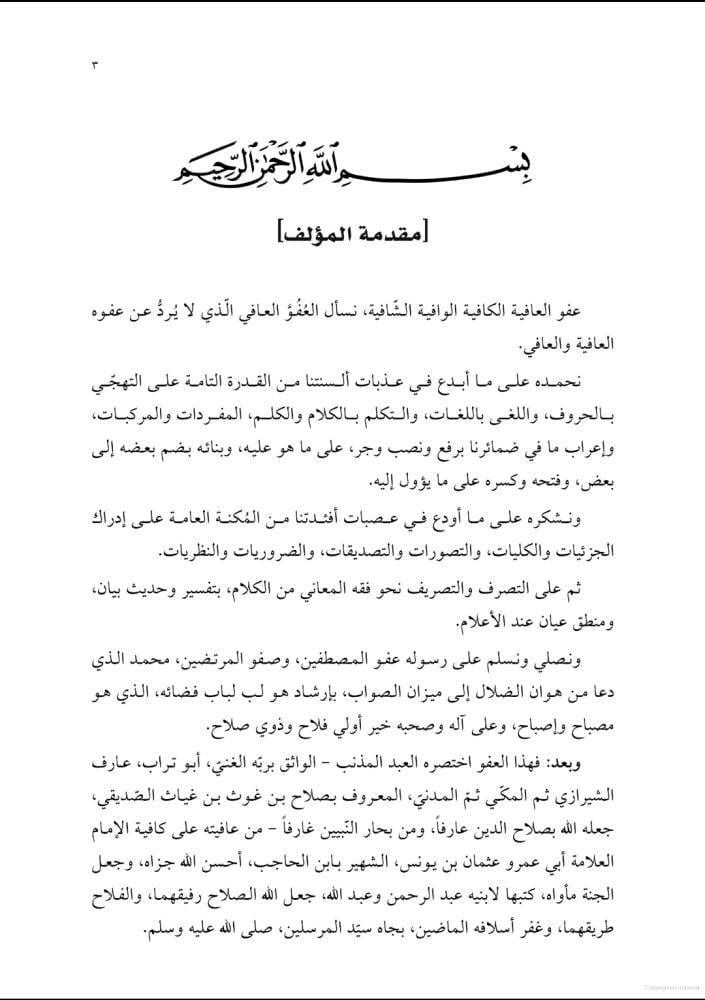 ٣
بِسْمِ ٱللَّهِ ٱلرَّحْمَٰنِ ٱلرَّحِيمِ
[مقدمة المؤلف]
عفو العافية الكافية الوافية الشّافية، نسأل العُفُوَّ العافي الّذي لا يُردُّ عن عفوه
العافية والعافي.
نحمده على ما أبدع في عذبات ألسنتنا من القدرة التامة على التهجّي
بالحروف، واللغى باللغات، والتكلم بالكلام والكلم، المفردات والمركبات،
وإعراب ما في ضمائرنا برفع ونصب وجر، على ما هو عليه، وبنائه بضم بعضه إلى
بعض، وفتحه وكسره على ما يؤول إليه.
ونشكره على ما أودع في عصبات أفئدتنا من المُكنة العامة على إدراك
الجزئيات والكليات، والتصورات والتصديقات، والضروريات والنظريات.
ثم على التصرف والتصريف نحو فقه المعاني من الكلام، بتفسير وحديث بيان،
ومنطق عيان عند الأعلام.
ونصلي ونسلم على رسوله عفو المصطفين، وصفو المرتضين، محمد الذي
دعا من هوان الضلال إلى ميزان الصواب، بإرشاد هو لب لباب فضائه، الذي هو
مصباح وإصباح، وعلى آله وصحبه خير أولي فلاح وذوي صلاح.
وبعد: فهذا العفو اختصره العبد المذنب – الواثق بربّه الغنيّ، أبو تراب، عارف
الشيرازي ثم المكّي ثمّ المدنيّ، المعروف بصلاح بن غوث بن غياث الصّديقي،
جعله الله بصلاح الدين عارفاً، ومن بحار النّبيين غارفاً – من عافيته على كافية الإمام
العلامة أبي عمرو عثمان بن يونس، الشهير بابن الحاجب، أحسن الله جزاه، وجعل
الجنة مأواه، كتبها لابنيه عبد الرحمن وعبد الله، جعل الله الصلاح رفيقهما، والفلاح
طريقهما، وغفر أسلافه الماضين، بجاه سيّد المرسلين، صلى الله عليه وسلم.
Copyrighted material